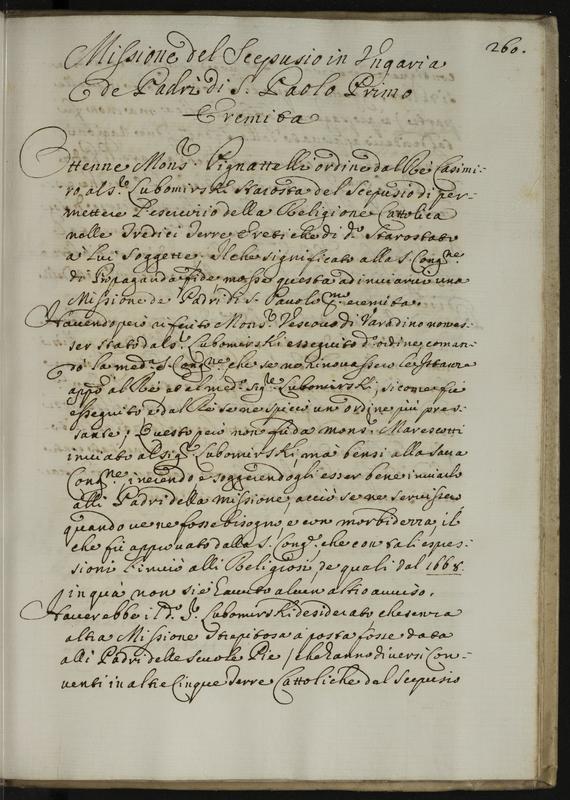 260.
Missione del Scepusio in Ungaria
e de Padri di S. Paolo Primo
Eremita
Ottenne Mons.r Pignattelli ordine dal Rè Casimi-
ro al S.r Lubomirski Starosta del Scepusio di per-
mettere l'esercizio della Religione Cattolica
nelle Tredici Terre Eretiche di d.o Starostato
à lui soggette; Il che significato alla S. Cong.ne
de Propaganda fide mosse questa ad inviarvi una
Missione de Padri di S. Pauolo P.mo eremita.
Havendo però riferito Mons.r Vescovo di Varadino non es-
ser stato dal S.r Lubomirski esseguito d.o ordine, coman-
dò la med.a S. Cong.ne che se ne rinovassero le Istanze
appo al Rè et al med.o Sig.re Lubomirski, si come fù
esseguito, e dal Rè se ne spicò un ordine più pres-
sante; Questo però non fù da Mons.r Marescotti
inviato al Sig.r Lubomirski, mà bensi alla Sacra
Cong.ne, riverendo e soggerendogli esser bene inviarlo
alli Padri della Missione, acciò se ne servissero
quando ve ne fosse bisogno, e con morbidezza, il
che fù approvato dalla S. Cong.e che con tali espres-
sioni l'inviò alli Religiosi, de quali dal 1668.
in quà non si è havuto alcun altro avviso.
Haverebbe il d.o S.r Lubomirski desiderato che senza
altra Missione strepitosa à posta fosse data
alli Padri delle Scuole Pie, (che hanno diversi Con-
venti in altre Cinque Terre Cattoliche del Scepusio